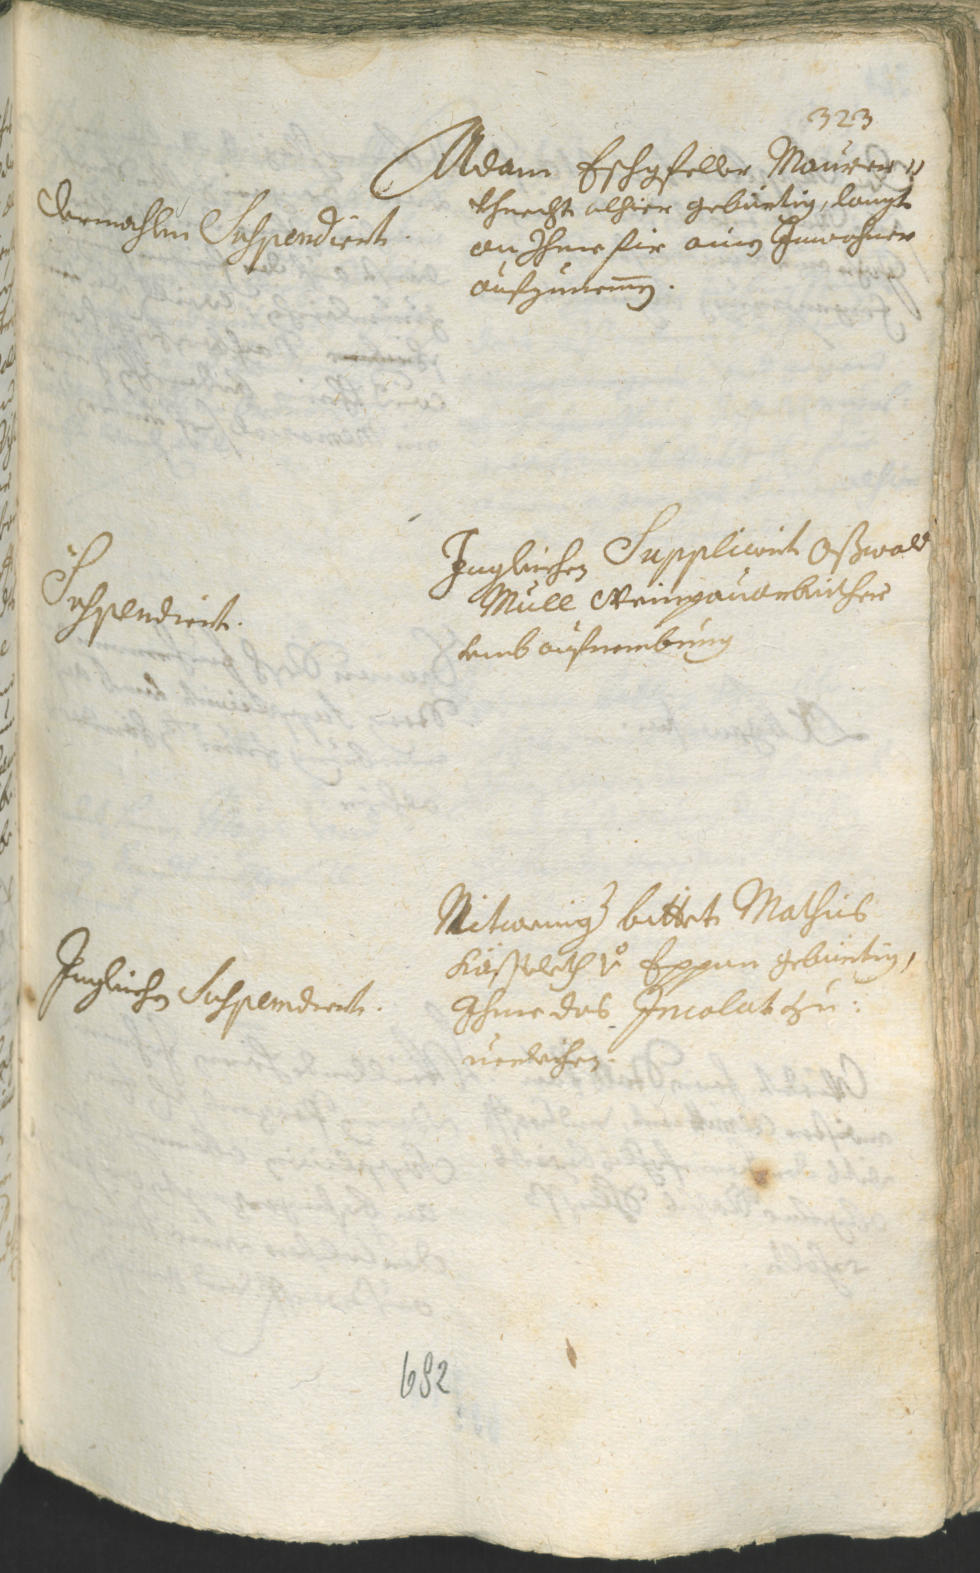 323
Adam Eschgfeller Maurer„
khnecht alhier gebürtig, langt
an Ihme für ainen Inwohner
aufzunemen.
Dermahlen Suspendiert.
Ingleichen Supplicirt Oßwald
Mull Weinpauarbeither
umb aufnembung
Suspendiert.
Mitwenig bittet Mathias
von Eppan gebürtig,
Ihme das Incolat zu:
verleichen.
Ingleichen Suspendiert.
692